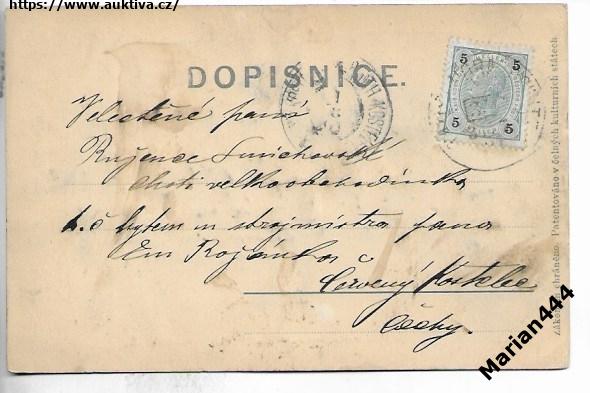 https://www.auktiva.cz/
DOPISNICE.
5 5
5 5
Velectěné paní
Růžence Smichovské
choti velkoobchodníka
t. č. bytem u strojmistra pana
Em Rožánka č
Červený Kostelec
Čechy.
Patentováno v čelných kulturních státech
chráněno.
Marian444